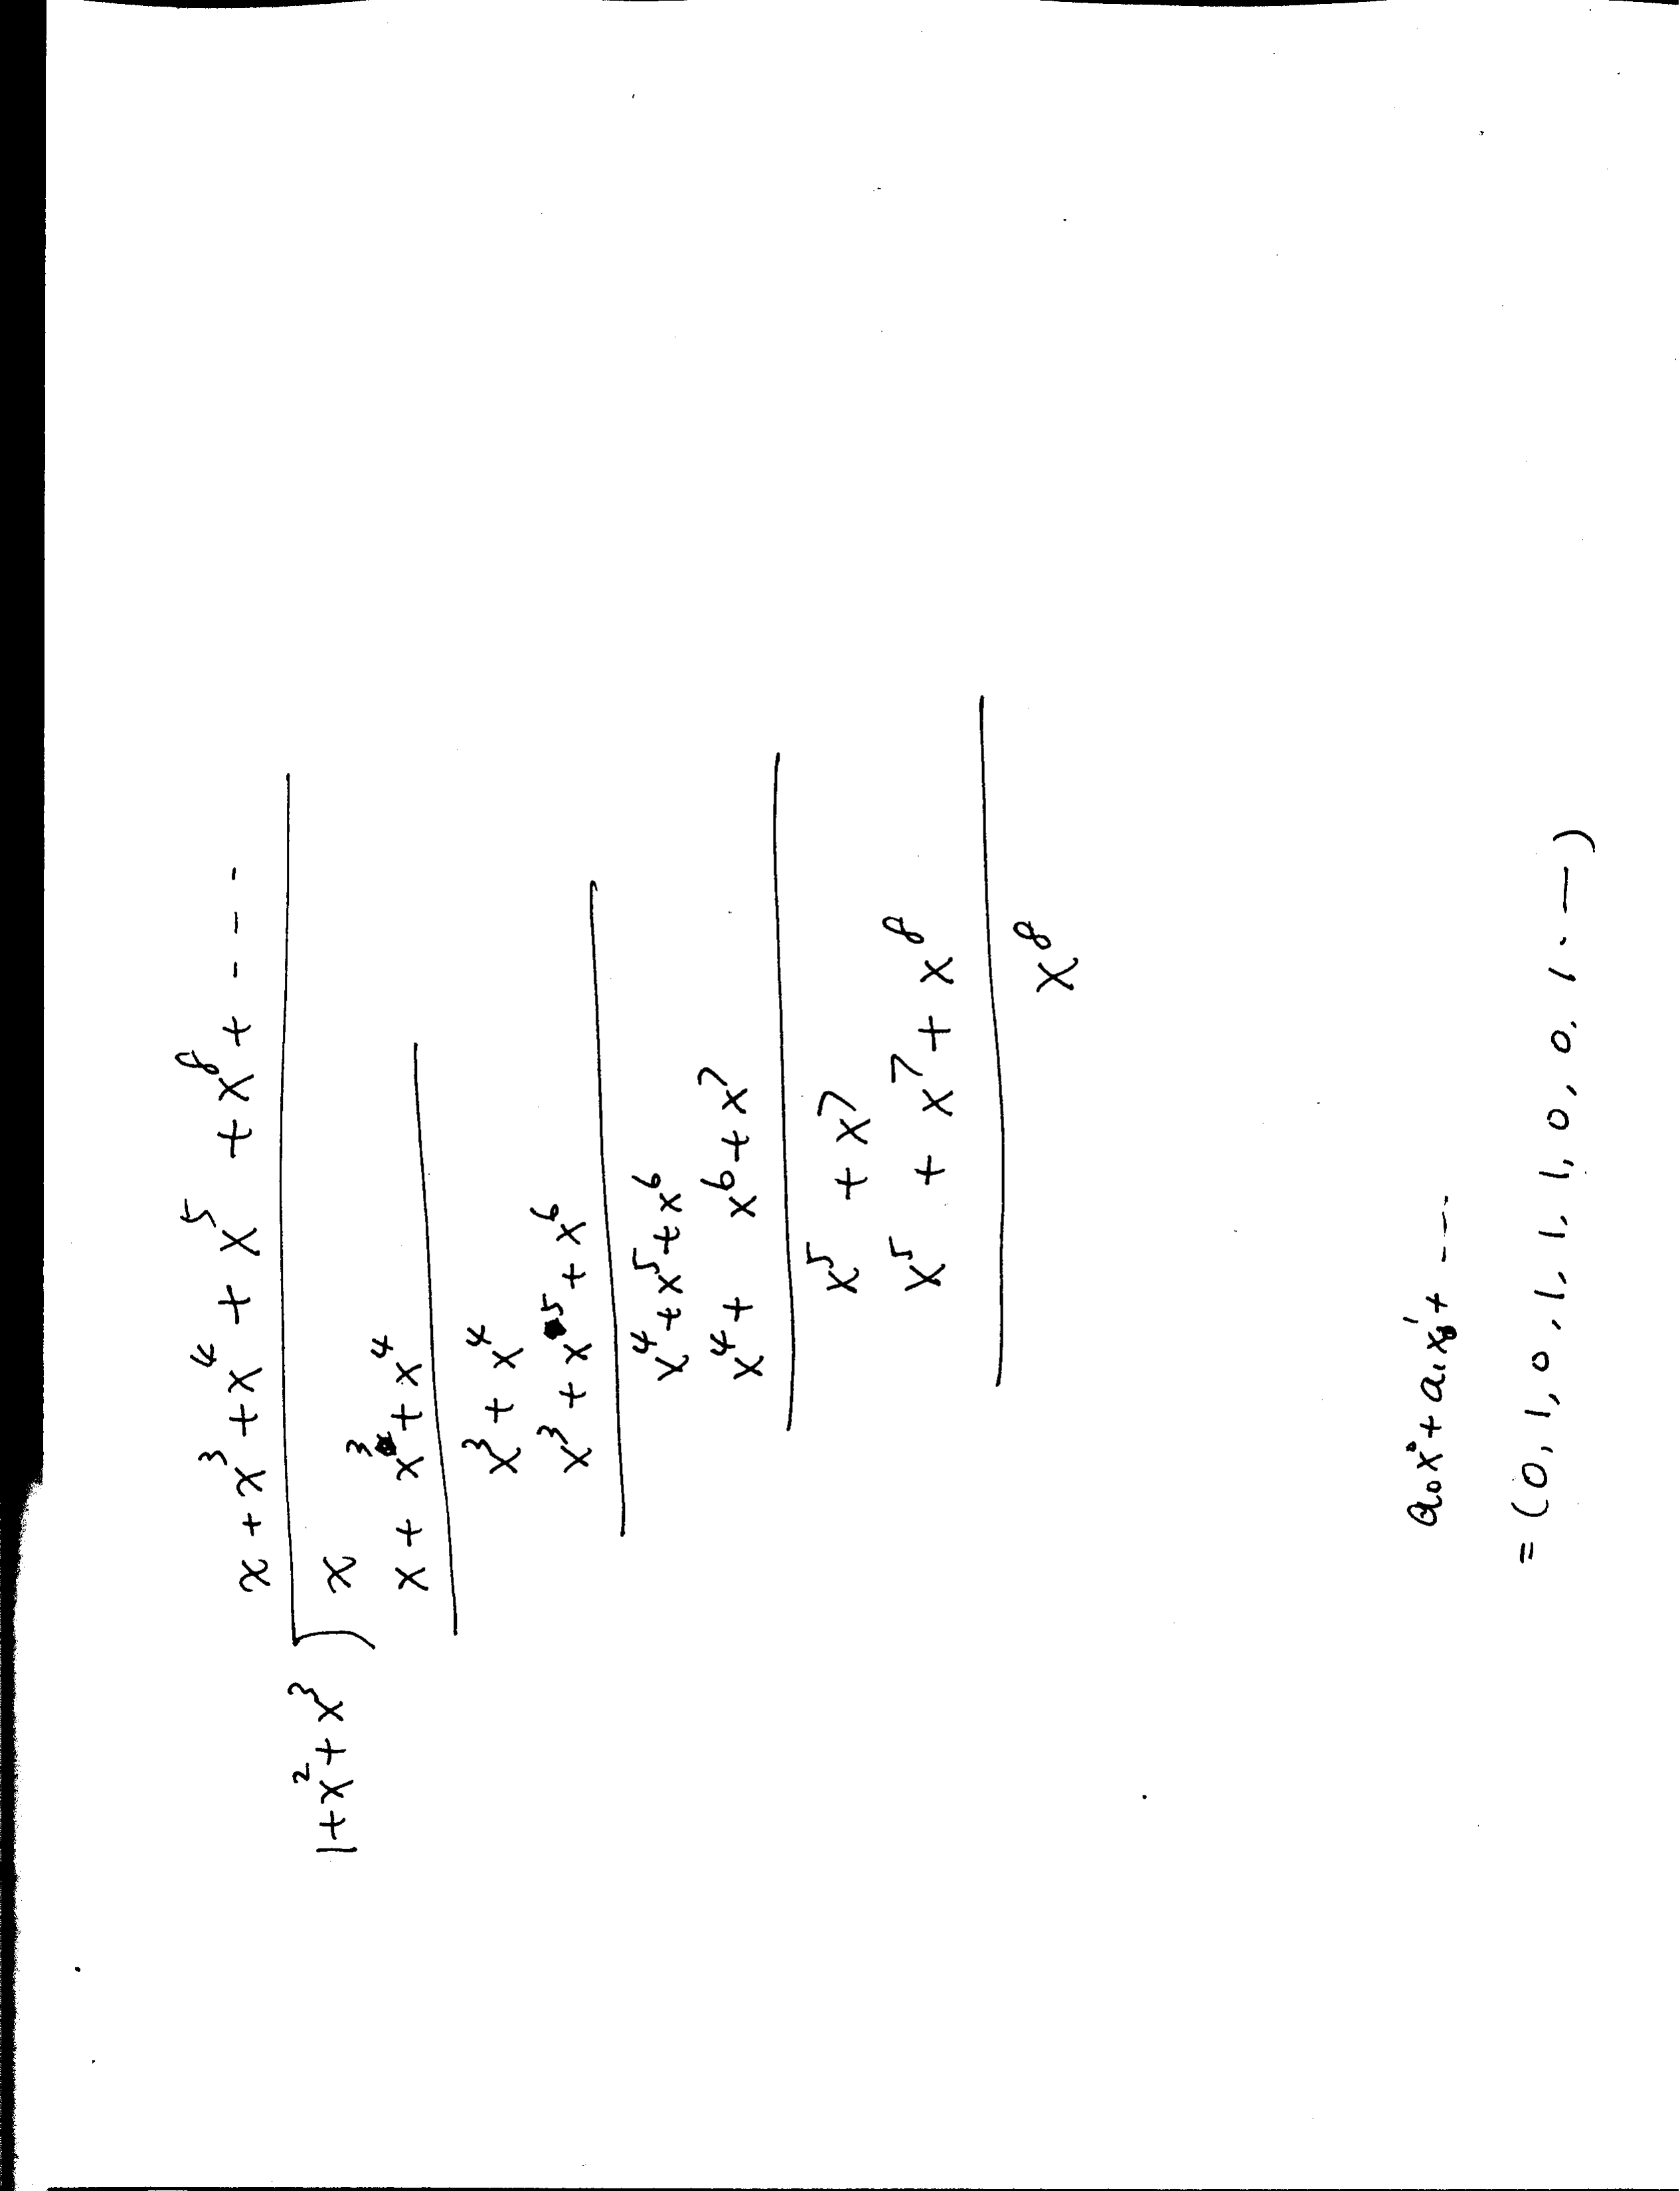 x + x³ + x⁴ + x⁵ + x⁸ + - - - -
1+x²+x³ ) x
x + x³ + x⁴
x³ + x⁴
x³ + x⁵ + x⁶
x⁴ + x⁵ + x⁶
x⁴ + x⁶ + x⁷
x⁵ + x⁷
x⁵ + x⁷ + x⁸
x⁸
a₀x⁰ + a₁x¹ + - - -
= (0, 1, 0, 1, 1, 1, 0, 0, 1 · —)